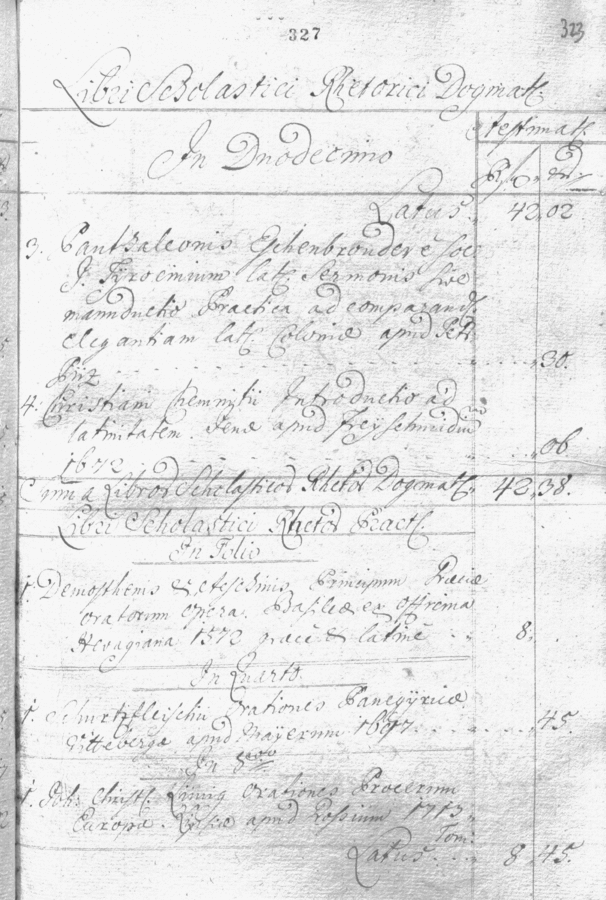 327
323
Libri Scholastici Rhetorici Dogmat:
Æstimat:
In Duodecimo
Latus 42. 02
3. Pantzaleonis Eschenbrender è Soc:
J. Tyrocinium lat: Sermonis sive
manuductio Practica ad comparand:
elegantiam lat: Coloniæ apud Petr:
Pütz 30.
4. Christiani Chemnitii Introductio ad
latinitatem. Jenæ apud Freyschmidium
1672 06
Summa Libror: Scholasticor: Rhetor: Dogmat: 42. 38.
Libri Scholastici Rhetor: Pract:
In Folio
1. Demosthenis & Æschinis Principum Græciæ
oratorum opera. Basileæ ex officina
Hervagiana 1572 græcè & latinè 8.
In Quarto
1. Schurtzfleischii Orationes Panegyricæ
Vittebergæ apud Mayerum 1697 45.
In 8avo
1. Joh: Christ: Lünig Orationes Procerum
Europæ. Lipsiæ apud 1713.
Tom:
Latus 8 45.